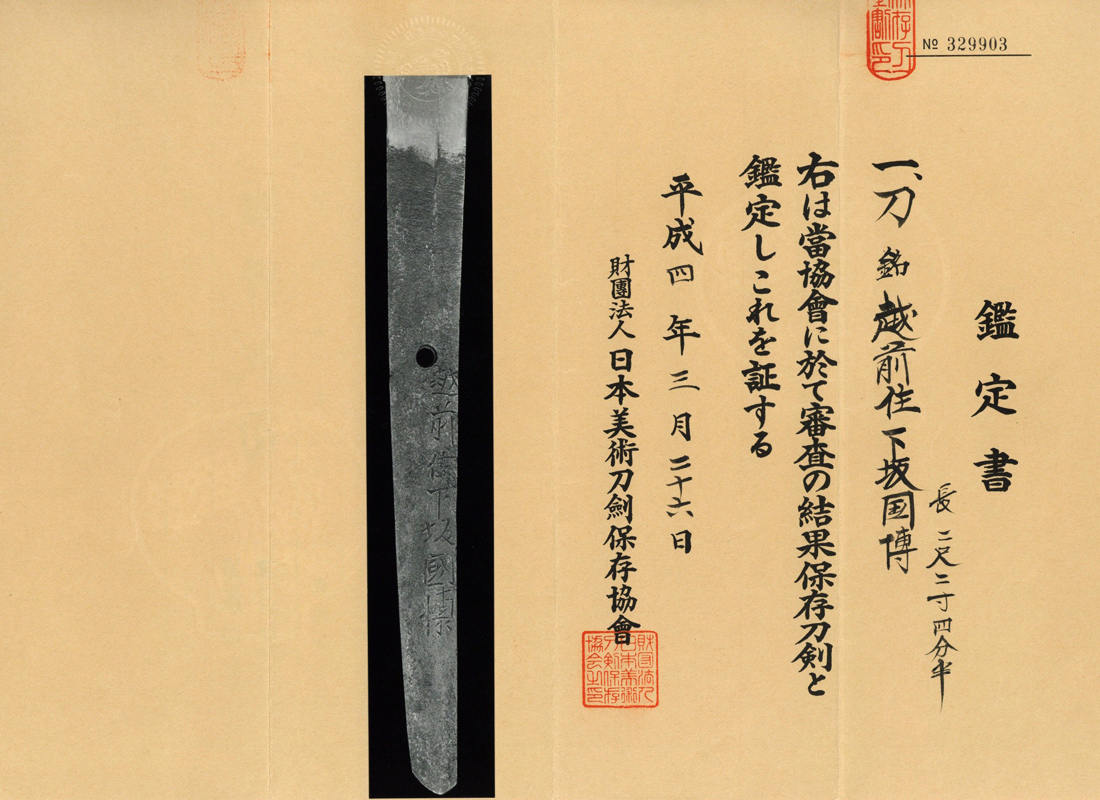 № 329903
鑑定書
一、刀 銘 越前住下坂国博
長 二尺二寸四分半
右は當協會に於て審査の結果保存刀剣と
鑑定しこれを証する
平成四年三月二十六日
財團法人 日本美術刀劍保存協會
財団法人
日本美術
刀剣保存
協会之印
越前住下坂國